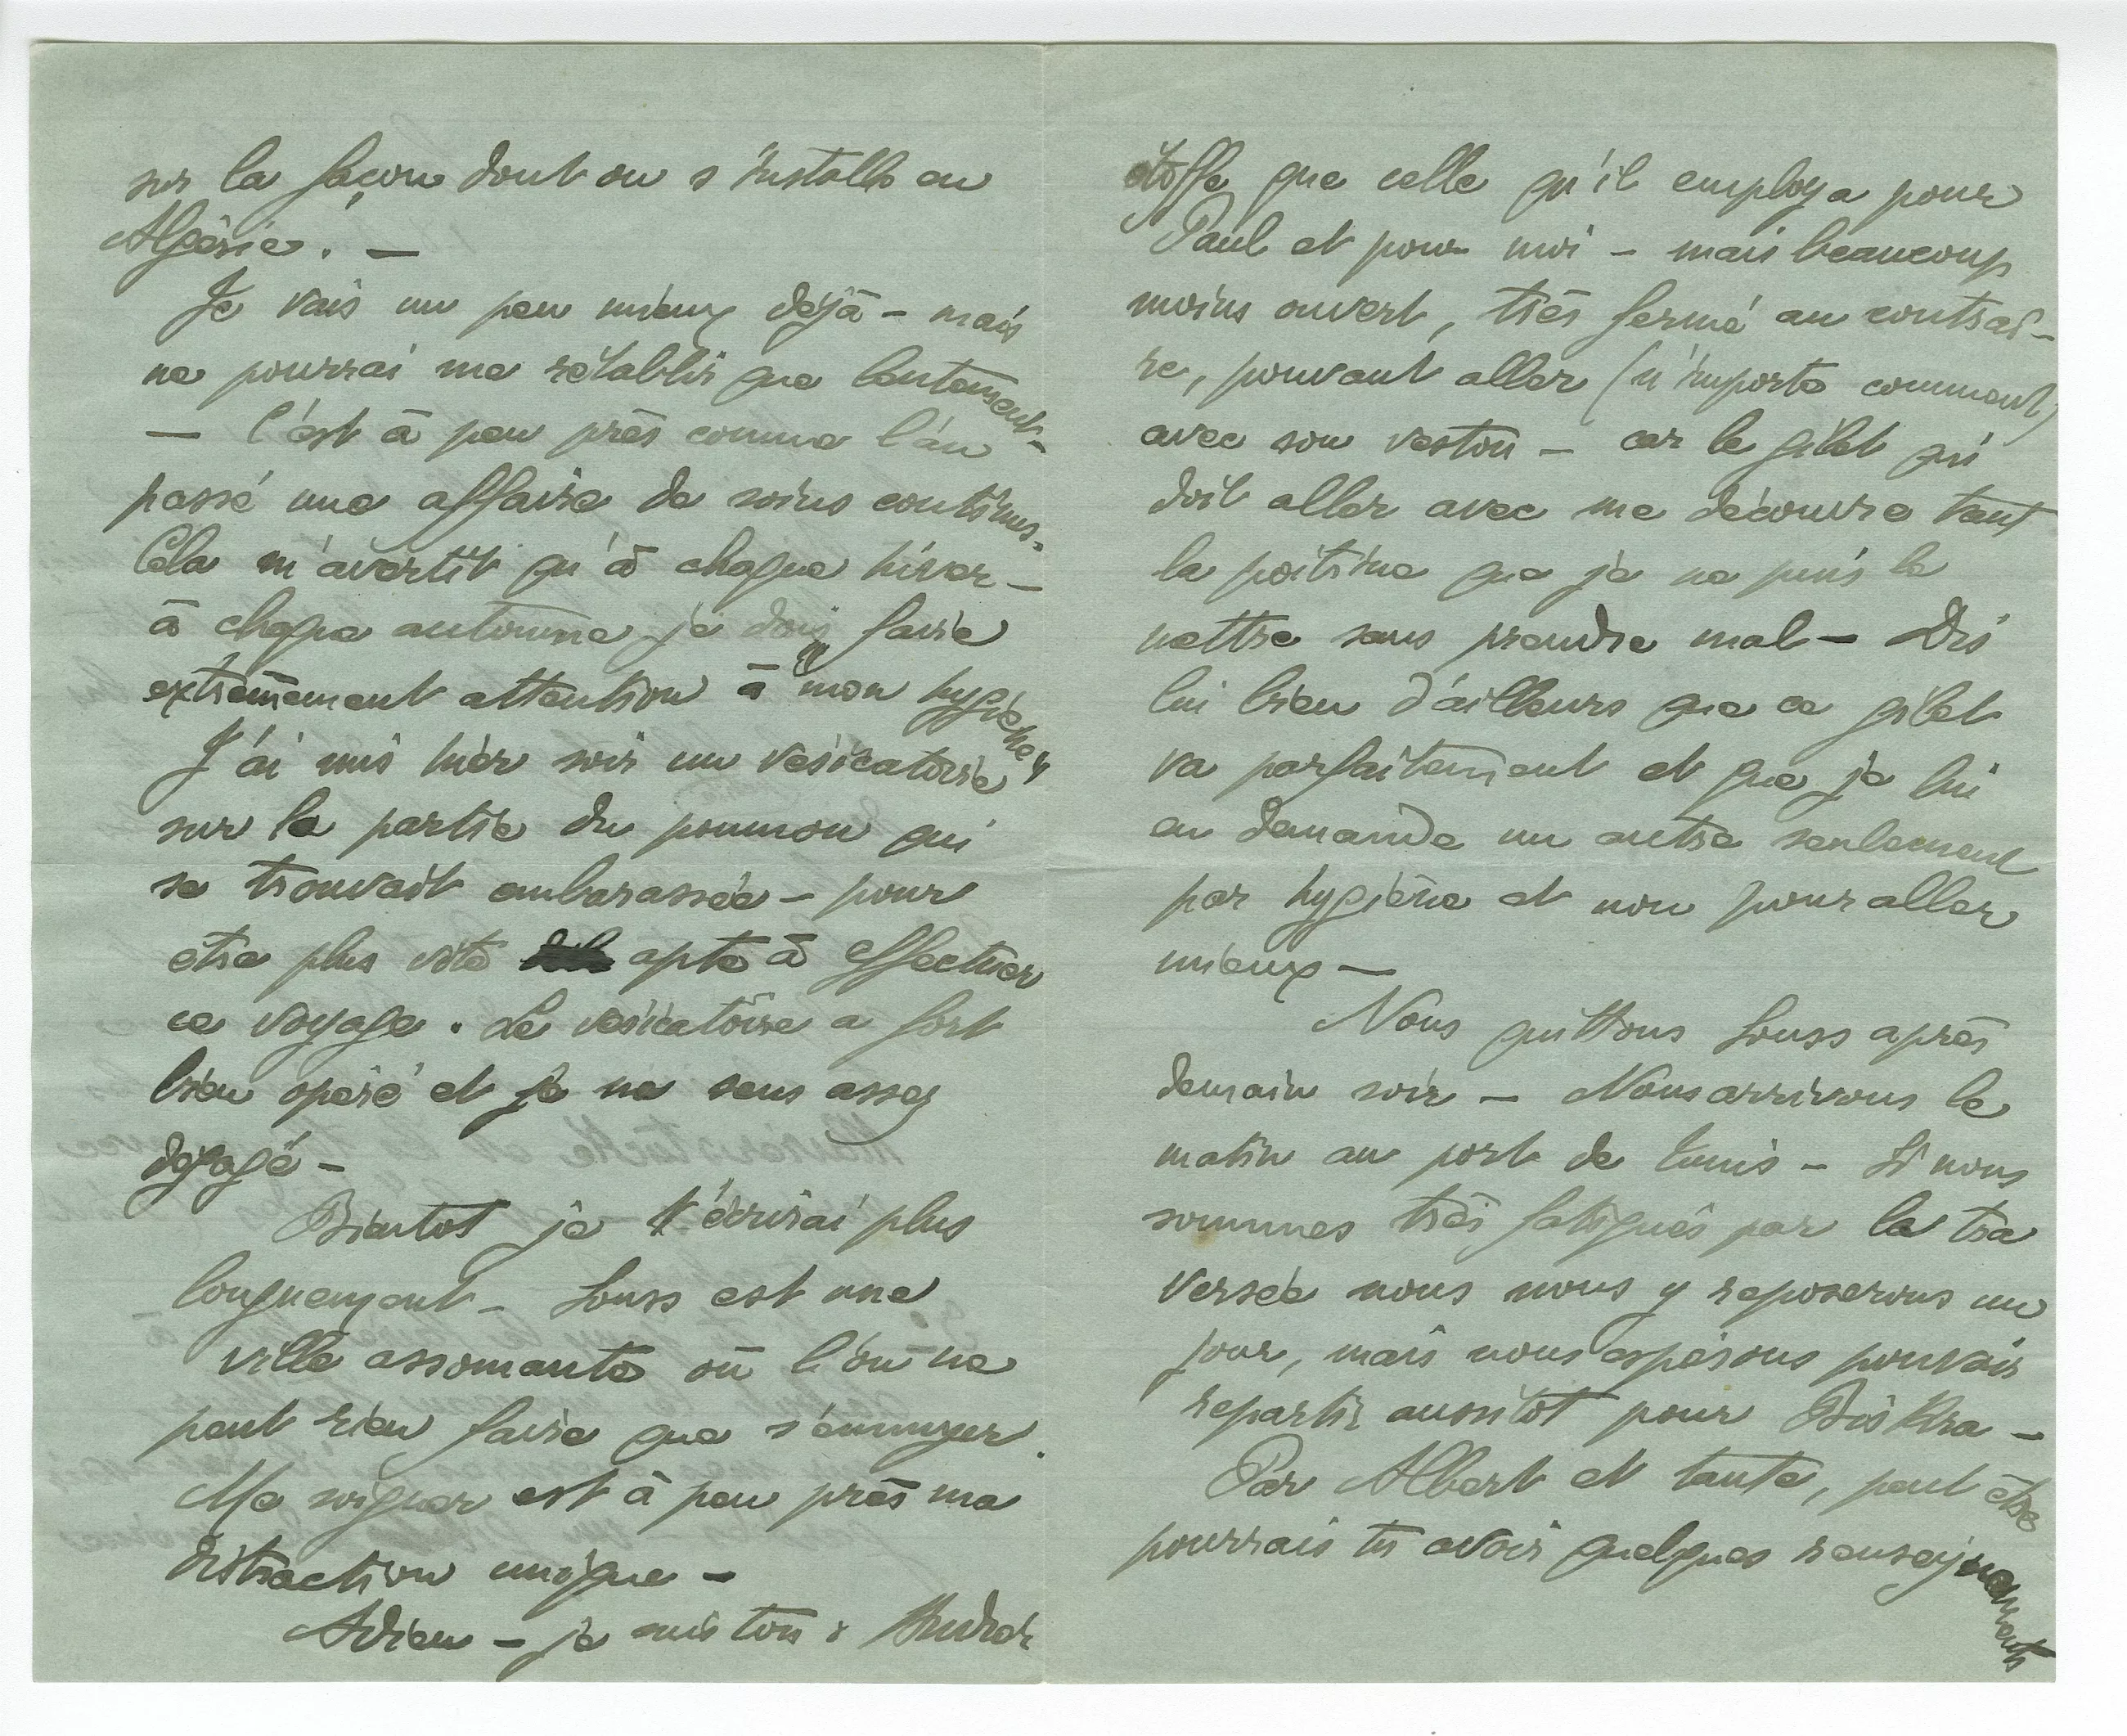 sur la façon dont on s'installe en
Algérie. —
Je vais un peu mieux déjà – mais
ne pourrai me rétablir que lentement –
— C'est à peu près comme l'an
passé une affaire de soins continus.
Cela m'avertit qu'à chaque hiver –
à chaque automne je dois faire
extrêmement attention à mon hygiène.
J'ai mis hier soir un vésicatoire
sur la partie du poumon qui
se trouvait embarassée – pour
être plus vite apte à effectuer
ce voyage. Le vésicatoire a fort
bien opéré et je me sens assez
dégagé –
Bientot je t'écrirai plus
longuement – Souss est une
ville assomante où l'on ne
peut rien faire que s'ennuyer.
Me soigner est à peu près ma
distraction unique –
Adieu – je suis ton André
étoffe que celle qu'il employa pour
Paul et pour moi – mais beaucoup
moins ouvert, très fermé au contrai-
re, pouvant aller (n'importe comment)
avec son veston – car le gilet qui
doit aller avec me découvre tant
la poitrine que je ne puis le
mettre sans prendre mal – Dis
lui bien d'ailleurs que ce gilet
va parfaitement et que je lui
en demande un autre seulement
par hygiène et non pour aller
mieux —
Nous quittons Souss après
demain soir – Nous arrivons le
matin au port de Tunis – Si nous
sommes très fatigués par la tra
versée nous nous y reposerons un
jour, mais nous espérons pouvoir
repartir aussitot pour Biskra –
Par Albert et tante, peut être
pourrais tu avoir quelques renseignements